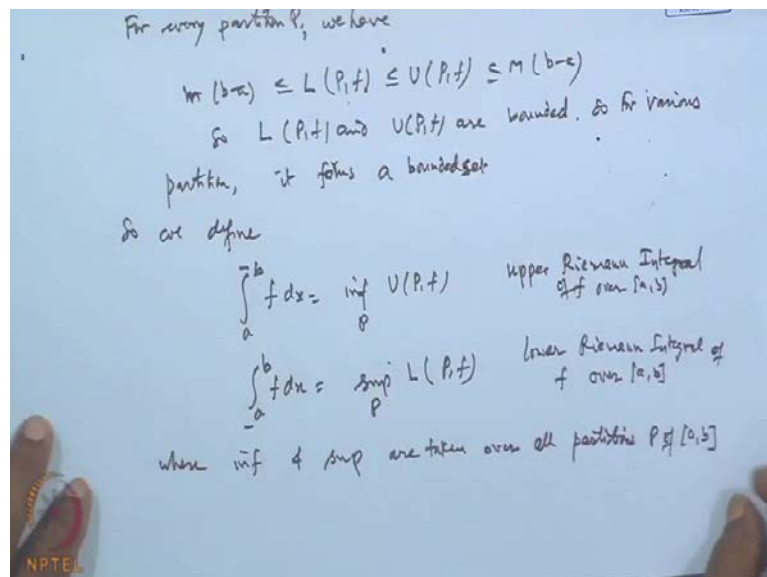 For every partition P, we have
m (b-a) ≤ L(P,f) ≤ U(P,f) ≤ M(b-a)
So L(P,f) and U(P,f) are bounded. So for various
partition, it forms a bounded set
So we define
∫_a^{-b} f dx = inf_P U(P,f) upper Riemann Integral of f over [a,b]
∫_{-a}^b f dx = sup_P L(P,f) lower Riemann Integral of f over [a,b]
where inf & sup are taken over all partitions P of [a,b]
NPTEL